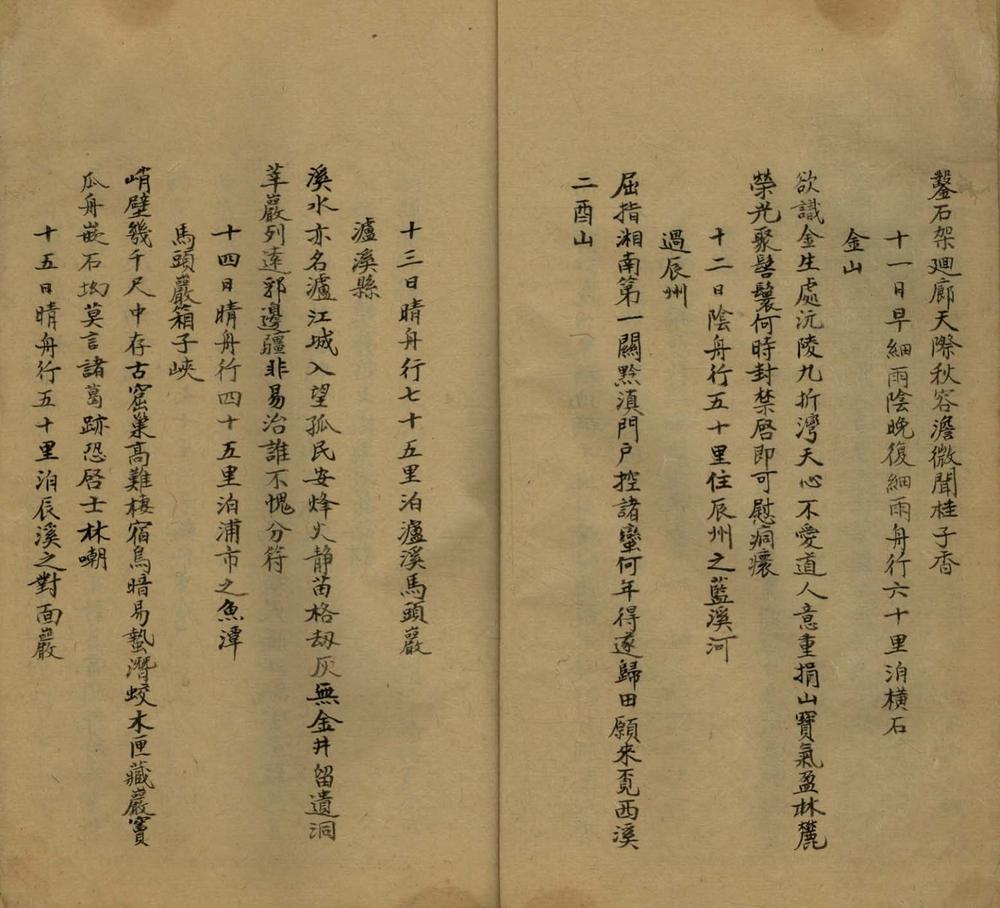 鑿石架廻廊天際秋容澹微聞桂子香
十一日早細雨陰晚復細雨舟行六十里泊橫石
金山
欲識金生處沅陵九折灣天心不愛道人意重捐山寶氣盈林麓
榮光聚髻鬟何時封禁啓即可慰痌瘝
十二日陰舟行五十里住辰州之藍溪河
過辰州
屈指湘南第一關黔滇門戶控諸蠻何年得遂歸田願來覓西溪
二酉山
十三日晴舟行七十五里泊瀘溪馬頭巖
瀘溪縣
溪水亦名瀘江城入望孤民安烽火静苗格刼灰無金井留遺洞
辛巖列達郛邊疆非易治誰不愧分符
十四日晴舟行四十五里泊浦市之魚潭
馬頭巖箱子峽
峭壁幾千尺中存古窟巢高難棲宿鳥暗易蟄潛蛟木匣藏巖竇
瓜舟嵌石坳莫言諸葛跡恐啓士林嘲
十五日晴舟行五十里泊辰溪之對面巖